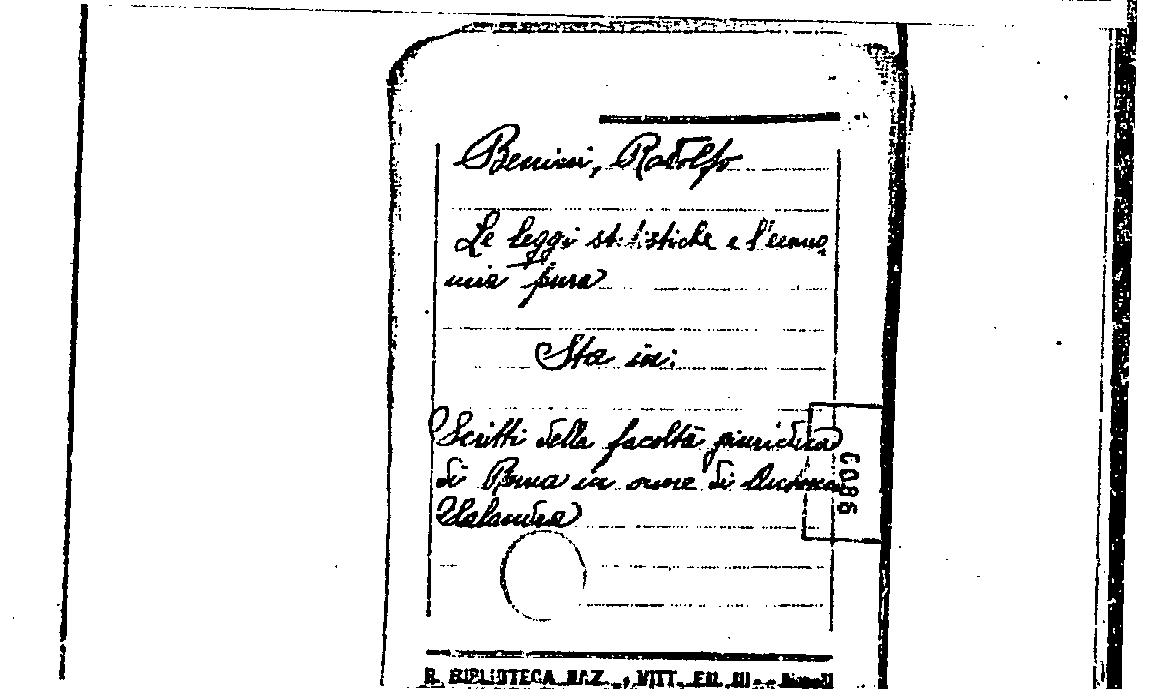 Benini, Rodolfo
Le leggi statistiche e l'econo
mia pura
Sta in:
Scritti della facoltà giuridica
di Roma in onore di Antonio
Salandra
0086
R. BIBLIOTECA NAZ. VITT. EM. III. - Napoli